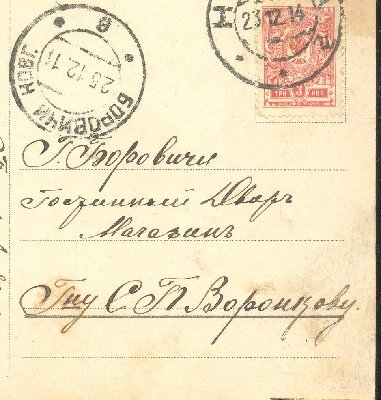 БОРОВИЧИ НОВГ.
25.12.14
в
23.12.14
ТРИ 3 КОП
Г. Боровичи
Гостинный Дворъ
Магазинъ
Гну С. П. Воронцову.